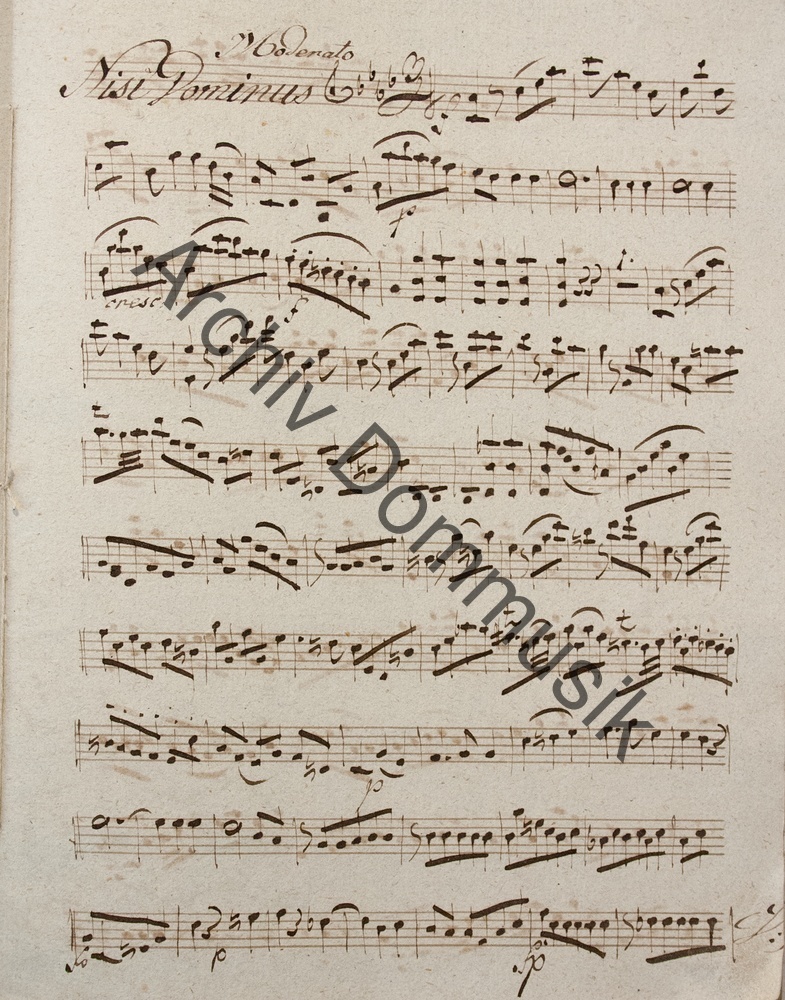 Moderato
Nisi Dominus
p
cresc f
t
p
fo p fp
Archiv Dommusik